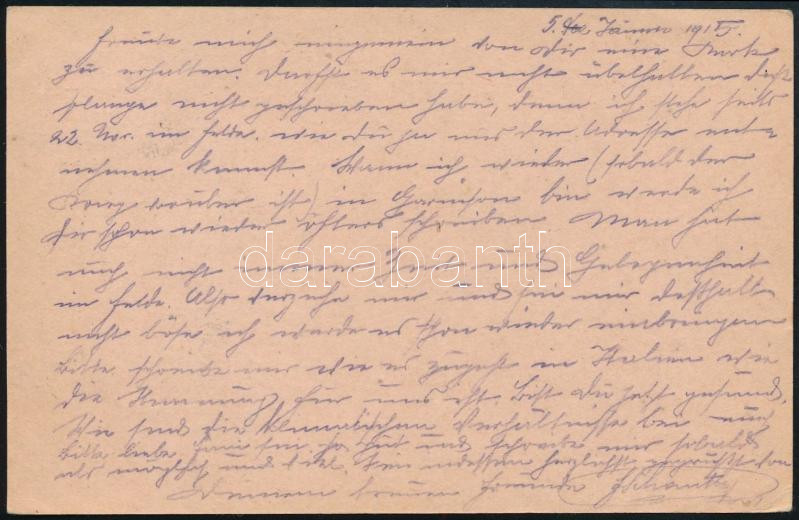 5. Jänner 1915.
Freute mich ungemein von Dir eine Karte
zu erhalten. Darfst es mir nicht übelhalten daß
solange nicht geschrieben habe, denn ich stehe seit
22. Nov. im Felde. wie Du ja aus der Adresse ent=
nehmen kannst. Wann ich wieder (sobald der
Krieg vorüber ist) in Garnison bin werde ich
Dir schon wieder öfters schreiben. Man hat
auch nicht immer Zeit und Gelegenheit
im Felde. Also verzeihe mir und sei mir deßhalb
nicht böse ich werde es schon wieder einbringen
Bitte schreibe mir wie es zugeht in Italien wie
die Stimmung für uns ist. Bist Du jetzt gesund.
Wie sind die klimatischen Verhältnisse bei
Bitte liebe sei so gut und schreibe mir sobald
als möglich und viel. Sei indessen herzlichst gegrüßt von
Deinem treuen Freunde
darabanth